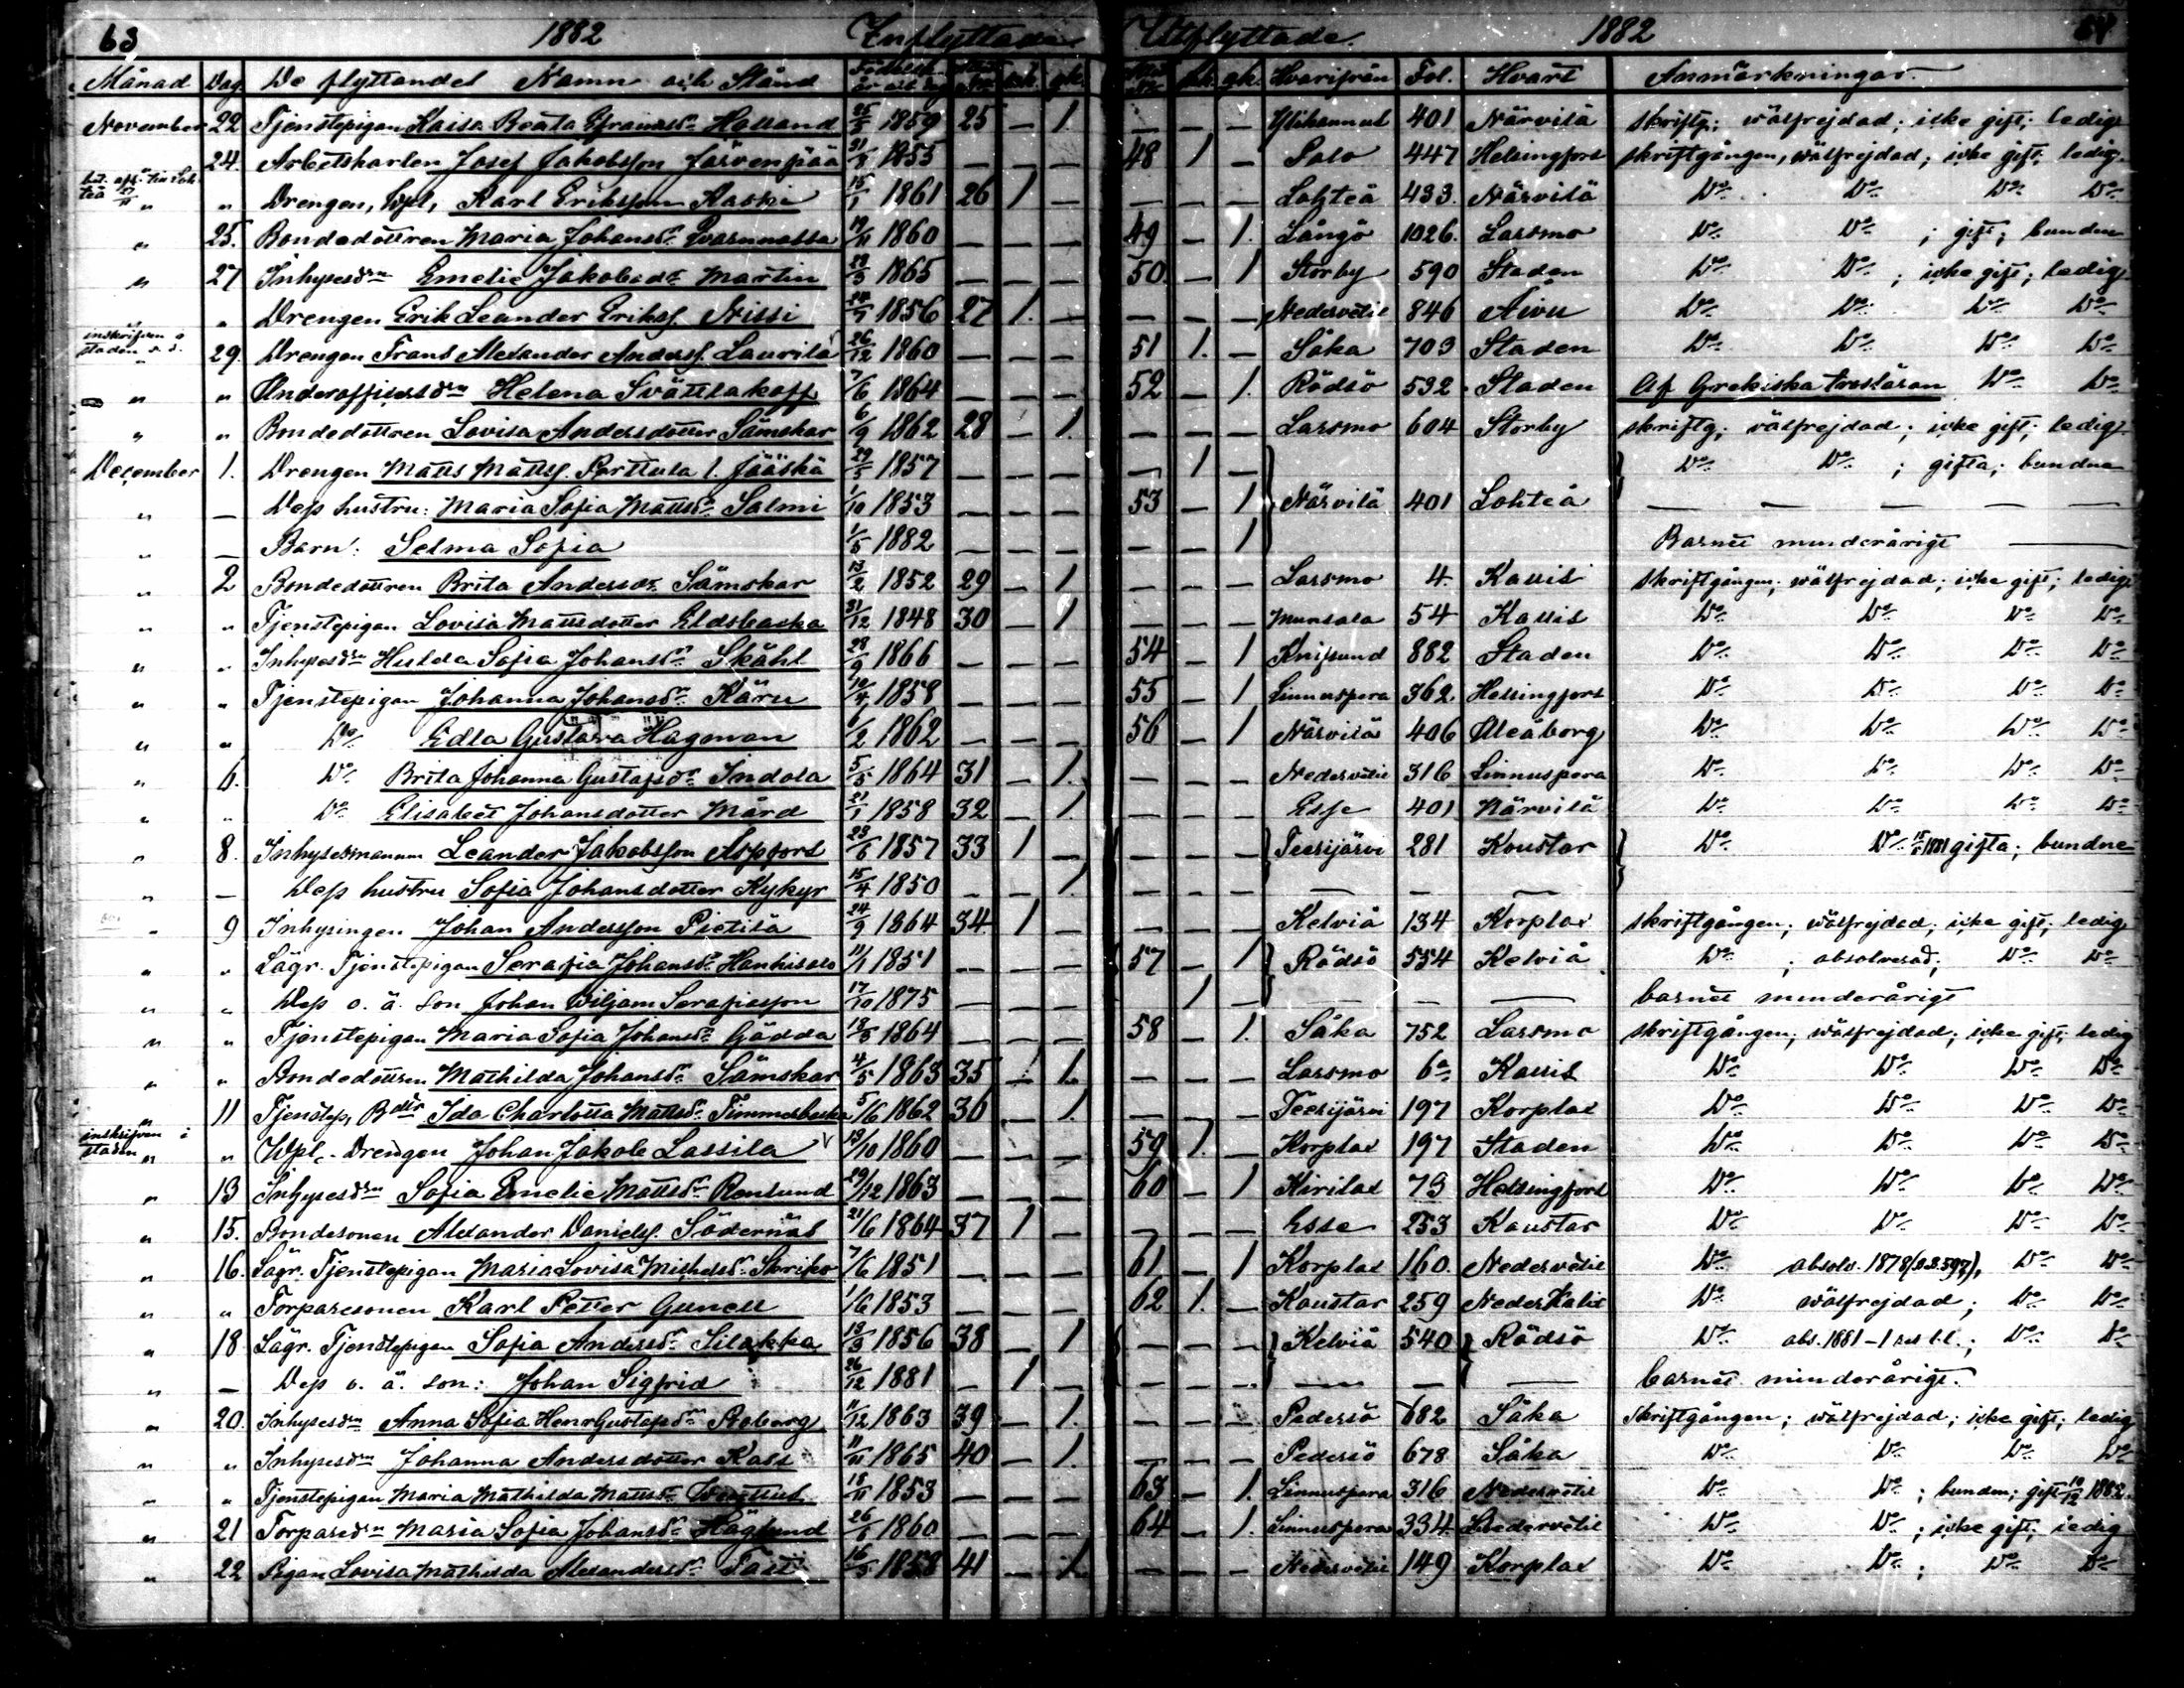 63 1882 Inflyttade Utflyttade. 1882 64
Månad Dag. De flyttandes Namn och Stånd mk. qk. mk. qk. Hvarifrån Fol. Hvart Anmärkningar.
November 22 Tjenstepigan Kaisa Beata Holland 25/5 1859 25 — 1. — — — 401 Närvilä skriftg; wälfrejdad; icke gift; ledig
24. Arbetskarlen Josef Jakobsson Järvenpää 31/8 1855 — — — 48 1 — Palo 447 Helsingfors skriftgången, wälfrejdad; icke gift; ledig.
" " Drengen, Karl Eriksson Kaski 15/1 1861 26 1 — — — — Lohteå 433. Närvilä Do Do Do Do
" 25. Bondedottren Maria Johansdr 19/11 1860 — — — 49 — 1. Långö 1026. Larsmo Do Do ; gift; bunden
" 27 Inhysesdrn Emelie Jakobsdr Martin 28/3 1865 — — — 50. — 1 Storby 590 Staden Do Do ; icke gift; ledig
" " Drengen Erik Leander Erikss. Nissi 24/7 1856 27 1. — — — — Nedervetil 846 Åivu Do Do Do Do
inskrifven i
staden s. d. 29. Drengen Frans Alexander Anderss. Laurila 26/12 1860 — — — 51 1. — Såka 703 Staden Do Do Do Do
" " Underofficersdrn Helena Svättlakoff 7/6 1864 — — — 52 — 1. Rödsö 532 Staden Af Grekiska trosläran Do Do
" " Bondedottren Lovisa Andersdotter Sämskar 6/9 1862 28 — 1. — — — Larsmo 604 Storby skriftg; wälfrejdad; icke gift; ledig
December 1. Drengen Matts Mattss. Parttula l. Jääskä 29/5 1857 — — — — 1 — Do Do ; gifta; bundna
" — Dess hustru: Maria Sofia Mattsdr Salmi 1/10 1853 — — — 53 — 1 Närvilä 401 Lohteå — — — — —
" — Barn: Selma Sofia 1/5 1882 — — — — — 1 Barnet minderårigt —
" 2 Bondedottren Brita Andersdr Sämskar 13/2 1852 29 — 1 — — — Larsmo 4. Kallis skriftgången; wälfrejdad; icke gift; ledig
" " Tjenstepigan Lovisa Mattsdotter Eldsbacka 31/12 1848 30 — 1 — — — Munsala 54 Kallis Do Do Do Do
" " Inhysesdrn Hulda Sofia Johansdr Ståhl 28/9 1866 — — — 54 — 1 Knifsund 882 Staden Do Do Do Do
" " Tjenstepigan Johanna Johansdr Käru 10/4 1858 — — — 55 — 1 Linnuspera 362 Helsingfors Do Do Do Do
" " Do Edla Gustava Hagman 6/2 1862 — — — 56 — 1 Närvilä 406 Uleåborg Do Do Do Do
" 6. Do Brita Johanna Gustafsdr Indola 5/5 1864 31 — 1. — — — Nedervetil 316 Linnuspera Do Do Do Do
" " Do Elisabet Johansdotter Mård 21/1 1858 32 — 1. — — — Esse 401 Närvilä Do Do Do Do
" 8. Inhysesmannen Leander Jakobsson Aspfors 23/6 1857 33 1 — — — — Teerijärvi 281 Koustar Do Do 1881 gifta; bundne
" — Dess hustru Sofia Johansdotter Kykyr 15/4 1850 — — 1. — — — — — —
" 9 Inhysingen Johan Andersson Pietilä 24/9 1864 34 1 — — — Kelviå 134 Korplax skriftgången; wälfrejdad; icke gift; ledig
" " Lägr. Tjenstepigan Serafia Johansdr Hanhisalo 11/1 1851 — — — 57 — 1 Rödsö 554 Kelviå Do ; absolverad; Do Do
" " Dess o. ä. son Johan Wiljam Serafiasson 17/10 1875 — — — 1 — — — — barnet minderårigt
" " Tjenstepigan Maria Sofia Johansdr Gädda 18/8 1864 — — — 58 — 1. Såka 752 Larsmo skriftgången; wälfrejdad; icke gift; ledig
" " Bondedottren Mathilda Johansdr Sämskar 4/5 1863 35 — 1. — — — Larsmo 6a Kallis Do Do Do Do
" 11 Tjenstep, Bdtr Ida Charlotta Mattsdr Timmerbacka 5/6 1862 36 — 1. — — — Teerijärvi 197 Korplax Do Do Do Do
inskrifven i
staden " " Drengen Johan Jakob Lassila 19/10 1860 — — — 59 1. — Korplax 197 Staden Do Do Do Do
" 13 Inhysesdrn Sofia Emelie Mattsdr Renlund 29/12 1863 — — — 60 — 1 Kirilax 73 Helsingfors Do Do Do Do
" 15. Bondesonen Alexander Danielss. Södernäs 21/6 1864 37 1 — — — — Esse 253 Kaustar Do Do Do Do
" 16. Lägr. Tjenstepigan Maria Lovisa Mickelsdr Skriko 7/6 1851 — — — 61 — 1 Korplax 160 Nedervetil Do absolv. 1878 (S.B. 597), Do Do
" " Torparesonen Karl Petter Gunell 1/6 1853 — — — 62 1. — Koustar 259 Do wälfrejdad; Do Do
" 18 Lägr. Tjenstepigan Sofia Andersdr Silakka 13/3 1856 38 — 1 — — — Kelviå 540 Rödsö Do abs. 1881 Do Do
" — Dess o. ä. son: Johan Sigfrid 26/12 1881 — 1 — — — — — — — barnet minderårigt.
" 20. Inhysesdrn Anna Sofia HenrGustafsdr Roborg 11/12 1863 39 — 1. — — — Pedersö 682 Såka Skriftgången; wälfrejdad; icke gift; ledig
" " Inhysesdrn Johanna Andersdotter Kass 11/11 1865 40 — 1. — — — Pedersö 678 Såka Do Do Do Do
" " Tjenstepigan Maria Mathilda Mattsdr 18/11 1853 — — — 63 — 1. Linnuspera 316 Nedervetil Do Do ; bunden; gift 10/12 1882.
" 21 Torparedrn Maria Sofia Johansdr Höglund 26/6 1860 — — — 64 — 1. Linnuspera 334 Nedervetil Do Do ; icke gift; ledig
" 22 Pigan Lovisa Mathilda Alexandersdr Fält 16/5 1858 41 — 1. — — — Nedervetil 149 Korplax Do Do ; Do Do